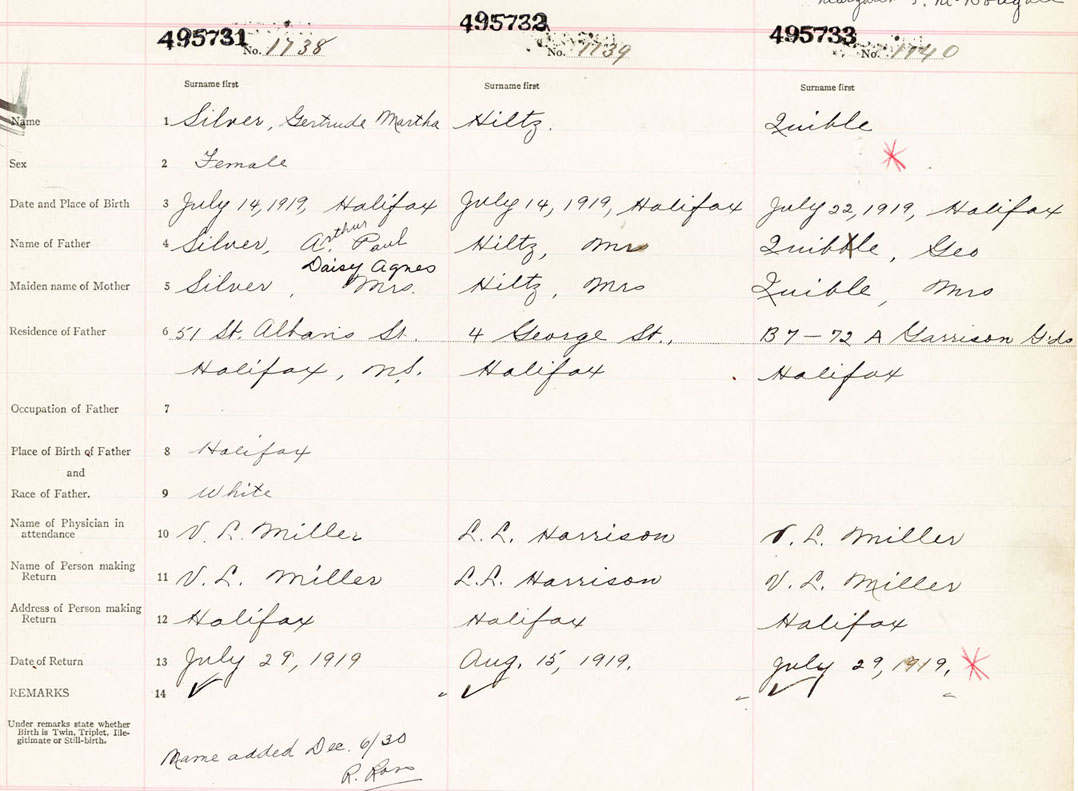 495731 No. 1738 495732 No. 1739 495733 No. 1740
Surname first Surname first Surname first
Name 1 Silver, Gertrude Martha Hiltz. Quible
Sex 2 Female
Date and Place of Birth 3 July 14, 1919, Halifax July 14, 1919, Halifax July 22, 1919, Halifax
Name of Father 4 Silver, Arthur Paul Hiltz, Mr Quible, Geo
Daisy Agnes
Maiden name of Mother 5 Silver, Mrs. Hiltz, Mrs Quible, Mrs
Residence of Father 6 51 St. Albans St. 4 George St., B7-72 A Garrison Gds
Halifax, N.S. Halifax Halifax
Occupation of Father 7
Place of Birth of Father 8 Halifax
and
Race of Father. 9 White
Name of Physician in
attendance 10 V. L. Miller L.L. Harrison V. L. Miller
Name of Person making
Return 11 V. L. Miller L.L. Harrison V. L. Miller
Address of Person making
Return 12 Halifax Halifax Halifax
Date of Return 13 July 29, 1919 Aug. 15, 1919. July 29, 1919.
REMARKS 14
Under remarks state whether
Birth is Twin, Triplet, Ille-
gitimate or Still-birth.
Name added Dec. 6/30
R. Ross